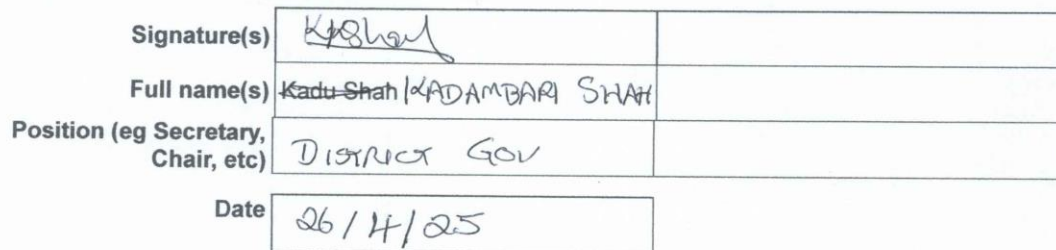 Signature(s) KpShah
Full name(s) Kadu Shah KADAMBARI SHAH
Position (eg Secretary,
Chair, etc) DISTRICT GOV
Date 26/4/25